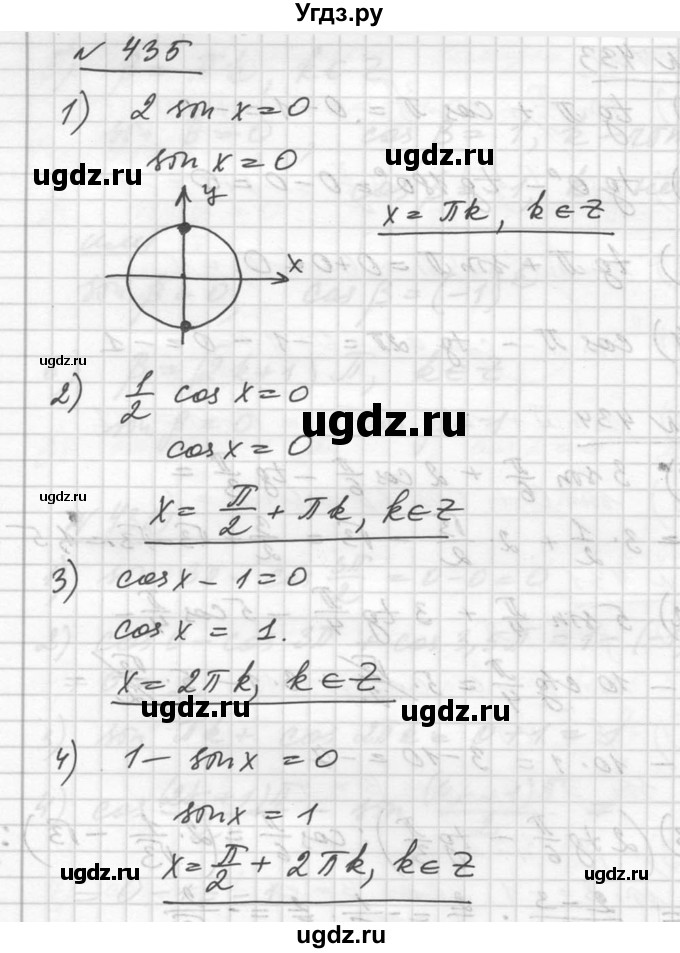 Угдз.ру
№ 435
1) 2 sin x = 0
sin x = 0
ugdz.ru
ugdz.ru
y
x = πk, k ∈ Z
x
ugdz.ru
2) 1/2 cos x = 0
ugdz.ru
cos x = 0
ugdz.ru
x = π/2 + πk, k ∈ Z
3) cos x - 1 = 0
cos x = 1.
x = 2πk, k ∈ Z
ugdz.ru
ugdz.ru
4) 1 - sin x = 0
sin x = 1
x = π/2 + 2πk, k ∈ Z
ugdz.ru
ugdz.ru
ugdz.ru